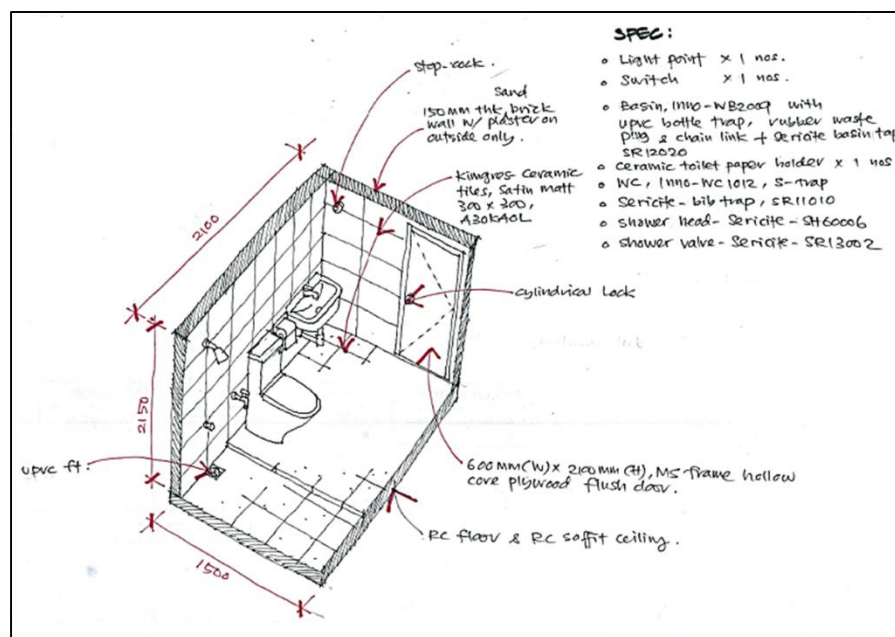 SPEC:
Light point x 1 nos.
Switch x 1 nos.
Basin, Inno-WB2009 with
upvc bottle trap, rubber waste
plug & chain link + sericite basin tap
SR12020
Ceramic toilet paper holder x 1 nos
WC, Inno-WC1012, S-trap
Sericite-bib trap, SR11010
Shower head-Sericite-SH60006
Shower valve-Sericite-SR13002
stop-cock.
Sand
150mm thk, brick
wall w/ plaster on
outside only.
Kimgres-Ceramic
tiles, Satin matt
300 x 300,
A30KA0L
cylindrical Lock
600mm(W) x 2100mm(H), MS frame hollow
core plywood flush door.
RC floor & RC soffit ceiling.
upvc ft.
2100
2150
1500